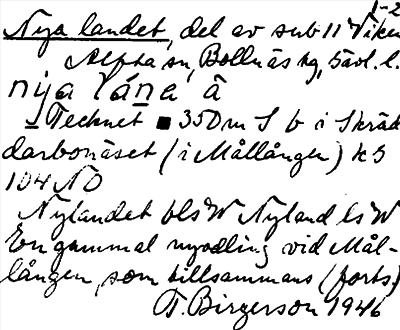 1-2
Nya landet, del av sub 11 Viken
Alfta sn, Bollnäs hg, Gävl. l.
nija láne â
Tecknet ■ 350 m S b i Skräd
darbonäset (i Mållången) k 3
104 NO
Nylandet bls W Nyland ls W
En gammal nyodling vid Mål-
lången, som tillsammans (forts.)
T. Birgerson 1946